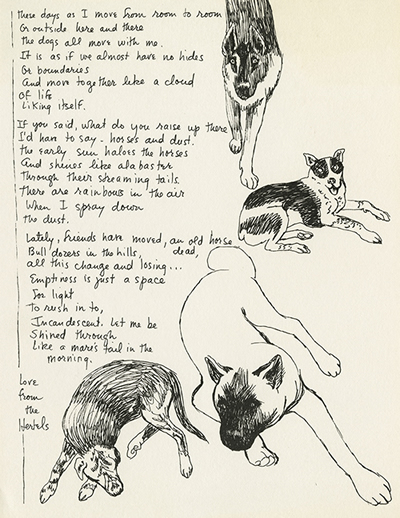 these days as I move from room to room
Or outside here and there
the dogs all move with me.
It is as if we almost have no hides
Or boundaries
And move together like a cloud
of life
Liking itself.
If you said, what do you raise up there
I'd have to say - horses and dust.
the early sun haloes the horses
And shines like alabaster
through their streaming tails.
there are rainbows in the air
When I spray down
the dust.
Lately, friends have moved, an old horse
Bull dozers in the hills, dead,
all this change and losing...
Emptiness is just a space
For light
To rush in to,
Incandescent. Let me be
Shined through
Like a mare's tail in the
morning.
Love
from
the
Hertels